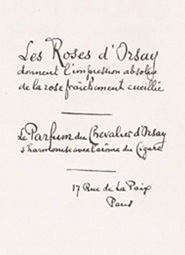 Les Roses d'Orsay
donnent l'impression absolue
de la rose fraîchement cueillie
Le Parfum du Chevalier d'Orsay
s'harmonise avec l'arôme du Cigare
17 Rue de La Paix
Paris